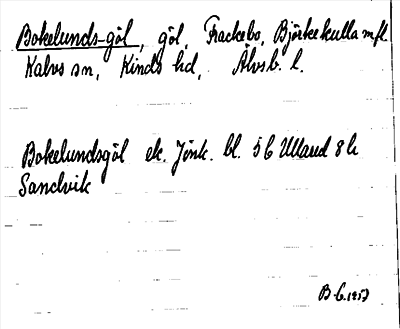 Bokelunds-göl, göl, Frackebo, Björkekulla m.fl.
Kalvs sn, Kinds hd, Älvsb. l.
Bokelundsgöl ek. Jönk. bl. 5 b Ullared 8 h
Sandvik
B 1953